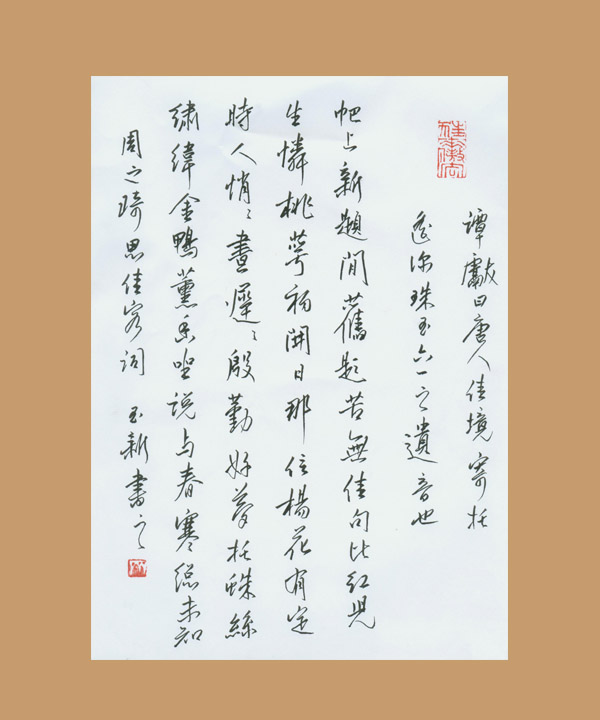 譚獻曰唐人佳境寄托
遙深珠玉六一之遺音也
帊上新題間舊題苦無佳句比紅兒
生憐桃萼初開日那信楊花有定
時人悄〻晝遲〻殷勤好夢托蛛絲
繡緯金鴨薰香坐說与春寒總未知
周之琦思佳客詞 玉新書之